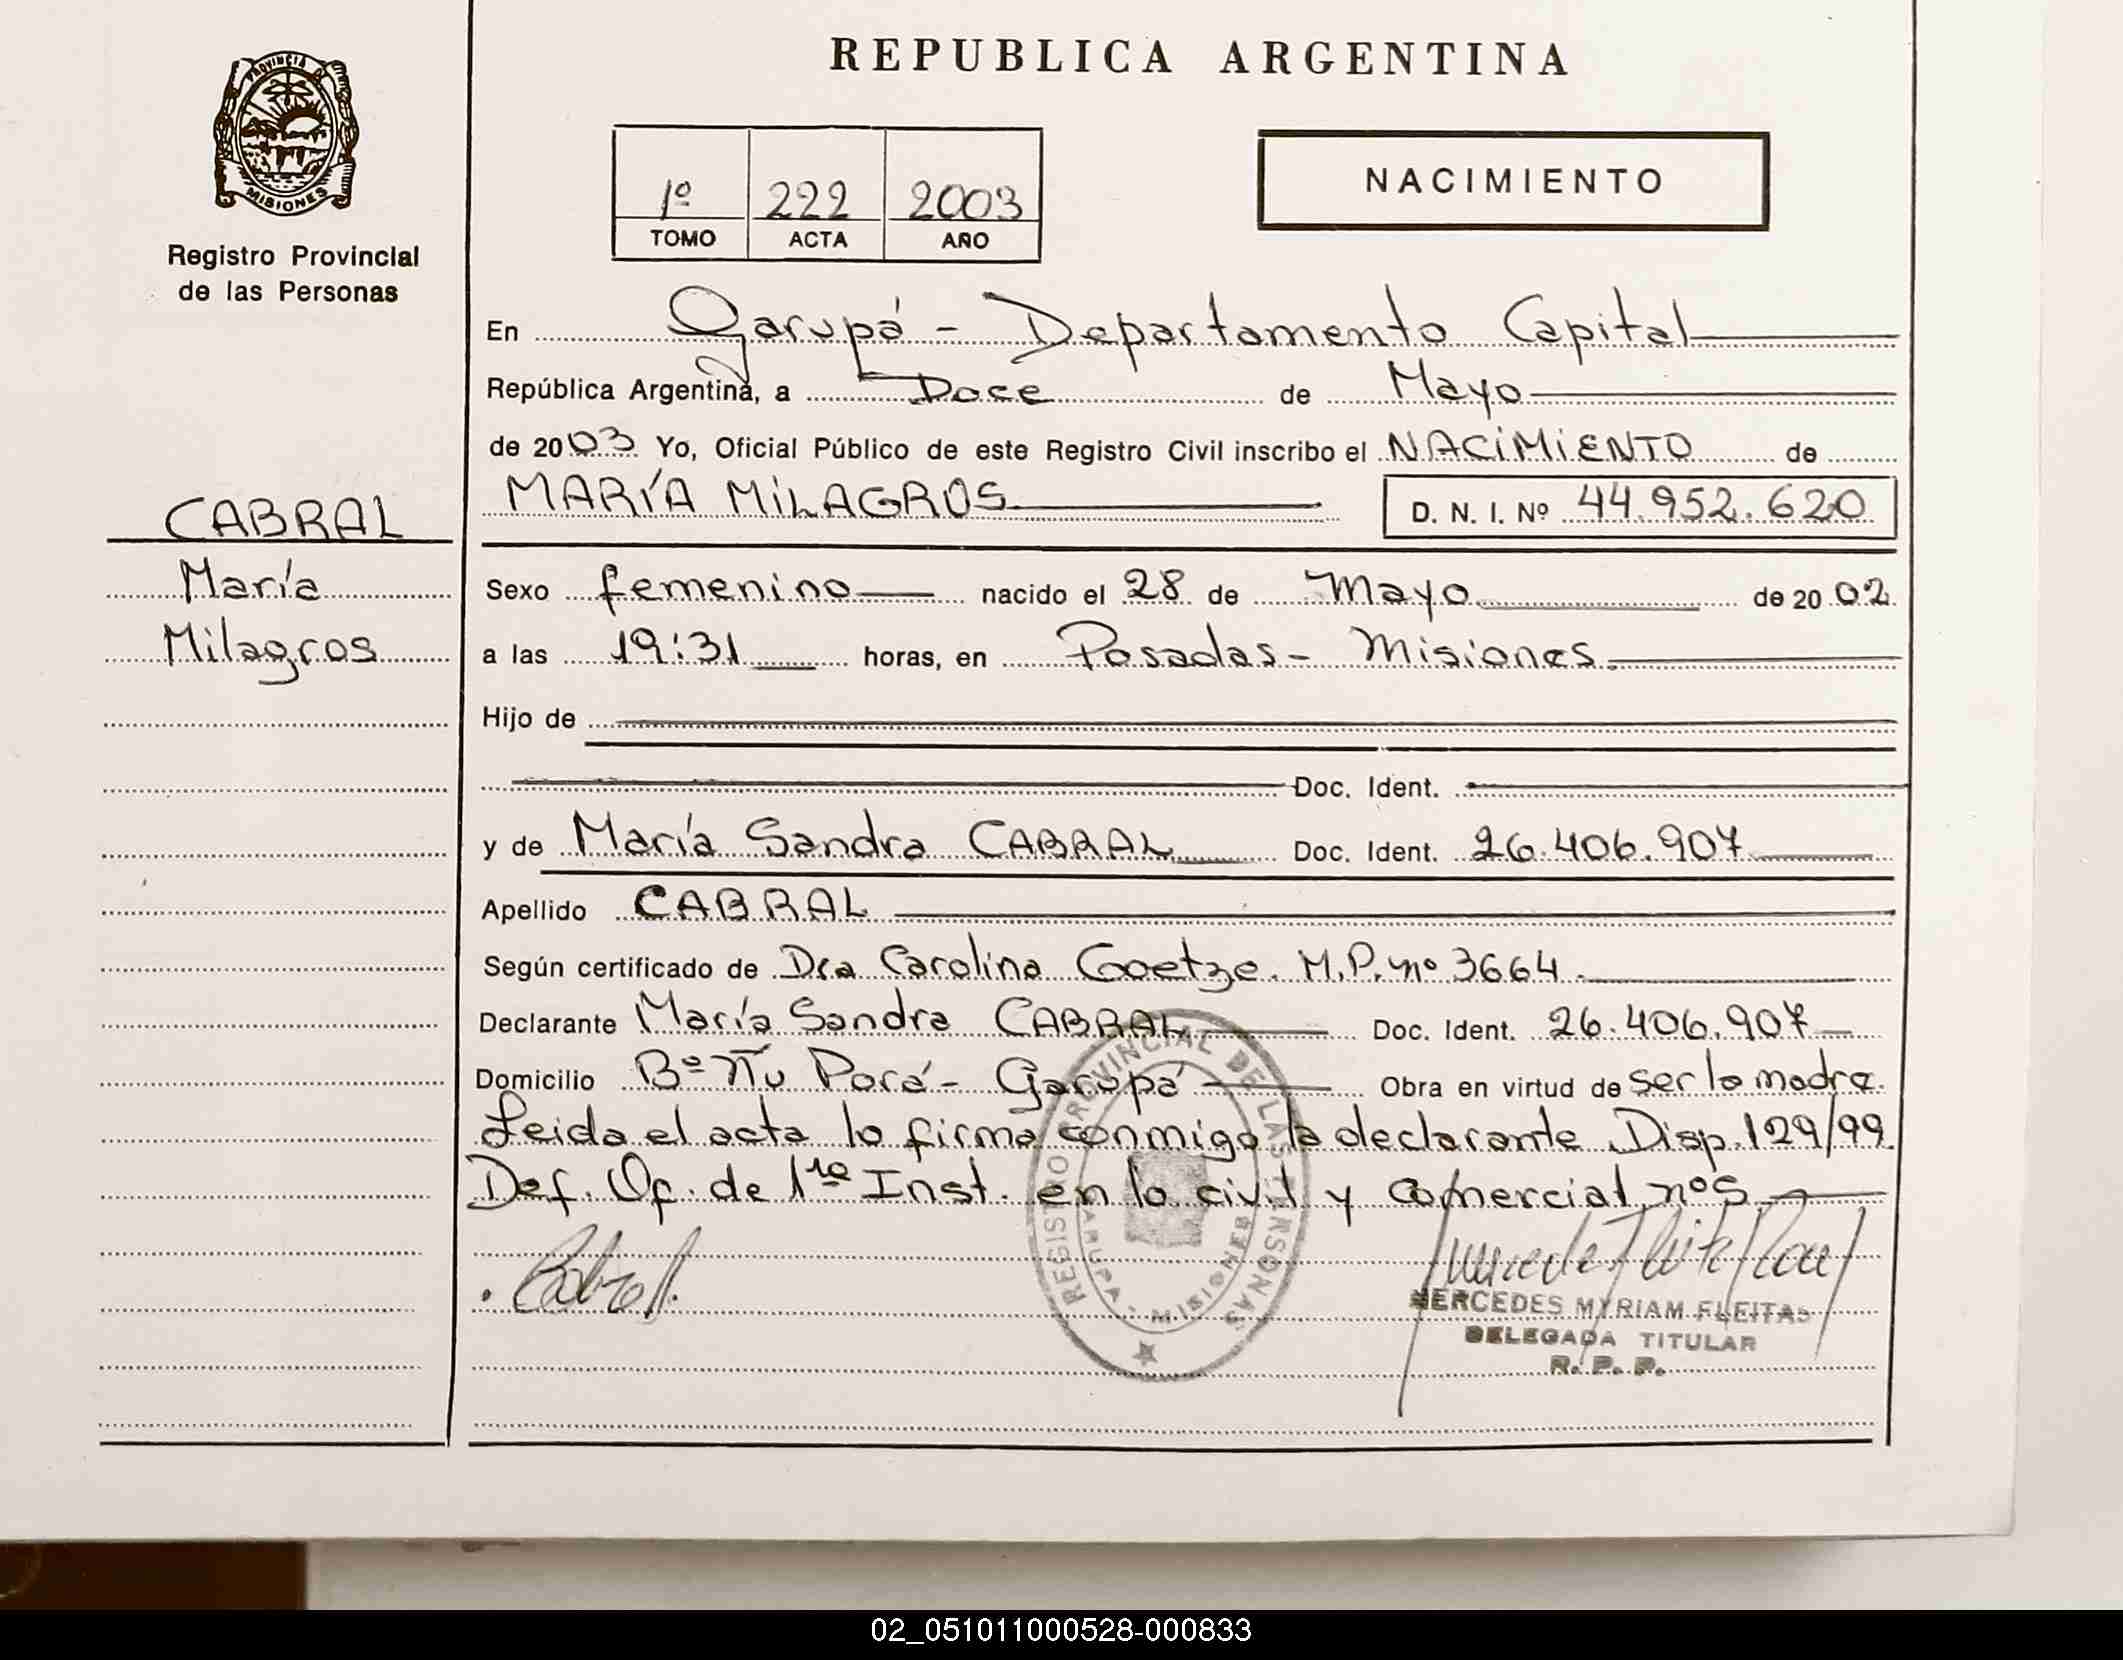 REPUBLICA ARGENTINA
PROVINCIA D
MISIONES
Registro Provincial
de las Personas
1º 222 2003
TOMO ACTA AÑO
NACIMIENTO
En Garupá - Departamento Capital
República Argentina, a Doce de Mayo
de 2003 Yo, Oficial Público de este Registro Civil inscribo el NACIMIENTO de
MARÍA MILAGROS D. N. I. Nº 44.952.620
CABRAL
María
Milagros
Sexo femenino nacido el 28 de Mayo de 2002
a las 19:31 horas, en Posadas - Misiones.
Hijo de
Doc. Ident.
y de María Sandra CABRAL Doc. Ident. 26.406.907
Apellido CABRAL
Según certificado de Dra Carolina Goetze. M.P. nº 3664.
Declarante María Sandra CABRAL Doc. Ident. 26.406.907
Domicilio Bº Ñu Porá - Garupá Obra en virtud de ser la madre.
Leida el acta la firma conmigo la declarante Disp. 129/99
Def. Of. de 1ra Inst. en lo civil y comercial nº5
Cabral
REGISTRO PROVINCIAL DE LAS PERSONAS
GARUPA - MISIONES
MERCEDES MYRIAM FLEITAS
DELEGADA TITULAR
R. P. P.
02_051011000528-000833